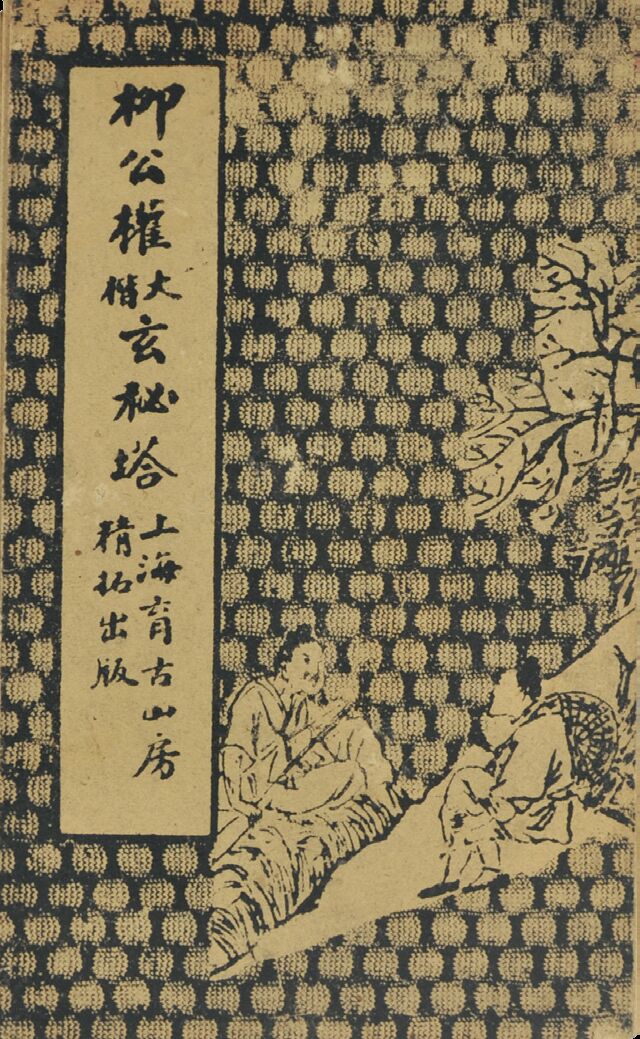 柳公權大楷玄秘塔
上海育古山房
精拓出版